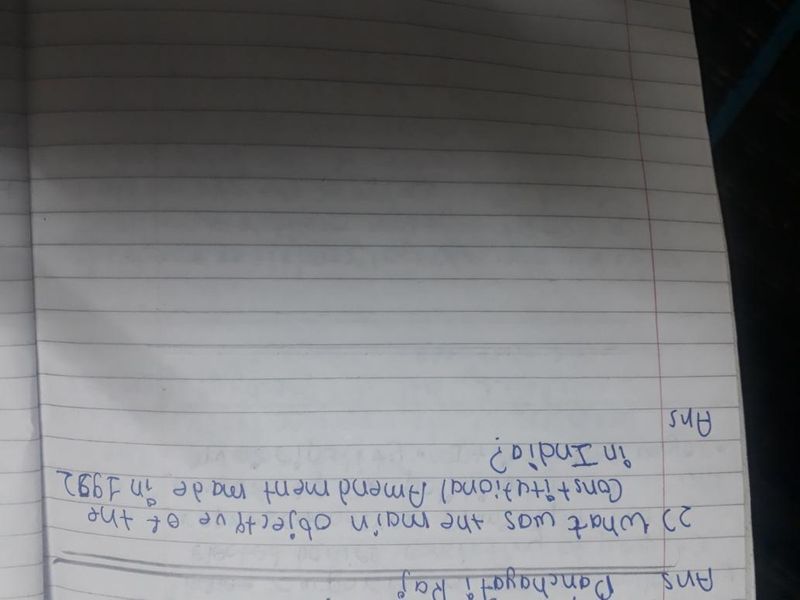 Ans Panchayati Raj
2) What was the main objective of the
Constitutional Amendment made in 1992
in India?
Ans